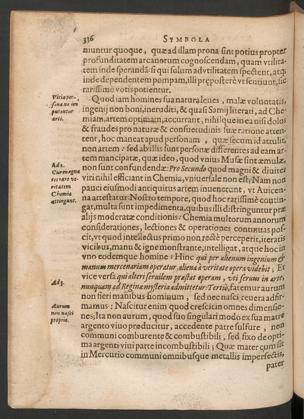 336
SYMBOLA
niuntur quoque, quæ ad illam prona sint potius propter
profunditatem arcanorum cognoscendam, quam vtilita-
tem inde sperandã: si qui solum ad vtilitatem spectent,
inde dependentem pompam, illi præposterè vt
rarissimè voti potientur.
Quod iam homines sua natura leues, malæ voluntatis
ingenij non boni, inerudici, & quasi Samij literati, ad Che-
miam, artem optimam, accurrant, nihilque in ea nisi dolos
& fraudes pro naturæ & consuetudinis suæ ratione atten-
tent, hoc maneat apud personam, quæ secum id attulit,
non artem: sed abusus sunt personæ differentes ad eam ar-
tem mancipatæ, quæ ideo, quod vnius Musæ sint æmulæ,
non sunt confundendæ. Pro Secundo quod magni & diuites
viri nihil efficiant in Chemia, vniuersale non est; Nam non
pauci eiusmodi antiquitus artem inuenerunt, vt Auicen-
na attestatur: Nostro tempore, quod hoc rarissimè contin-
gat, multa sunt impedimenta, quibus illi distringuntur præ
alijs moderatæ conditionis: Chemia muscorum annorum
considerationes, lectiones & operationes continuas pos-
cit, vt quod intellectus primo non rectè perceperit, iteratis
vicibus, manu & igne monstrante, intelligat, atque hoc in
vno eodemque homine: Hinc qui per alienum ingenium &
manum mercenariam operatur, aliena à veritate opera videbit; Et
vice versâ qui alteri seruilem præstat operam, vti seruus in arte,
nunquam ad Reginæ mysteria admittetur. Tertiò, fatemur aurum
non fieri manibus hominum, sed nec nasci reuera adfir-
mamus: Nascitur enim quod crescit in omnes dimensio-
nes; Ita non aurum, quod suo singulari modo ex sua matre
argento viuo producitur, accedente patre sulfure, non
communi comburente & combustibili, sed fixo de opti-
ma argenti viui parte incombustibili; Quæ mater cum sit
in Mercurio communi omnibusque metallis imperfectis,
pater
Ad 2.
Ad 3.
Aurum
non nasci
propriè.